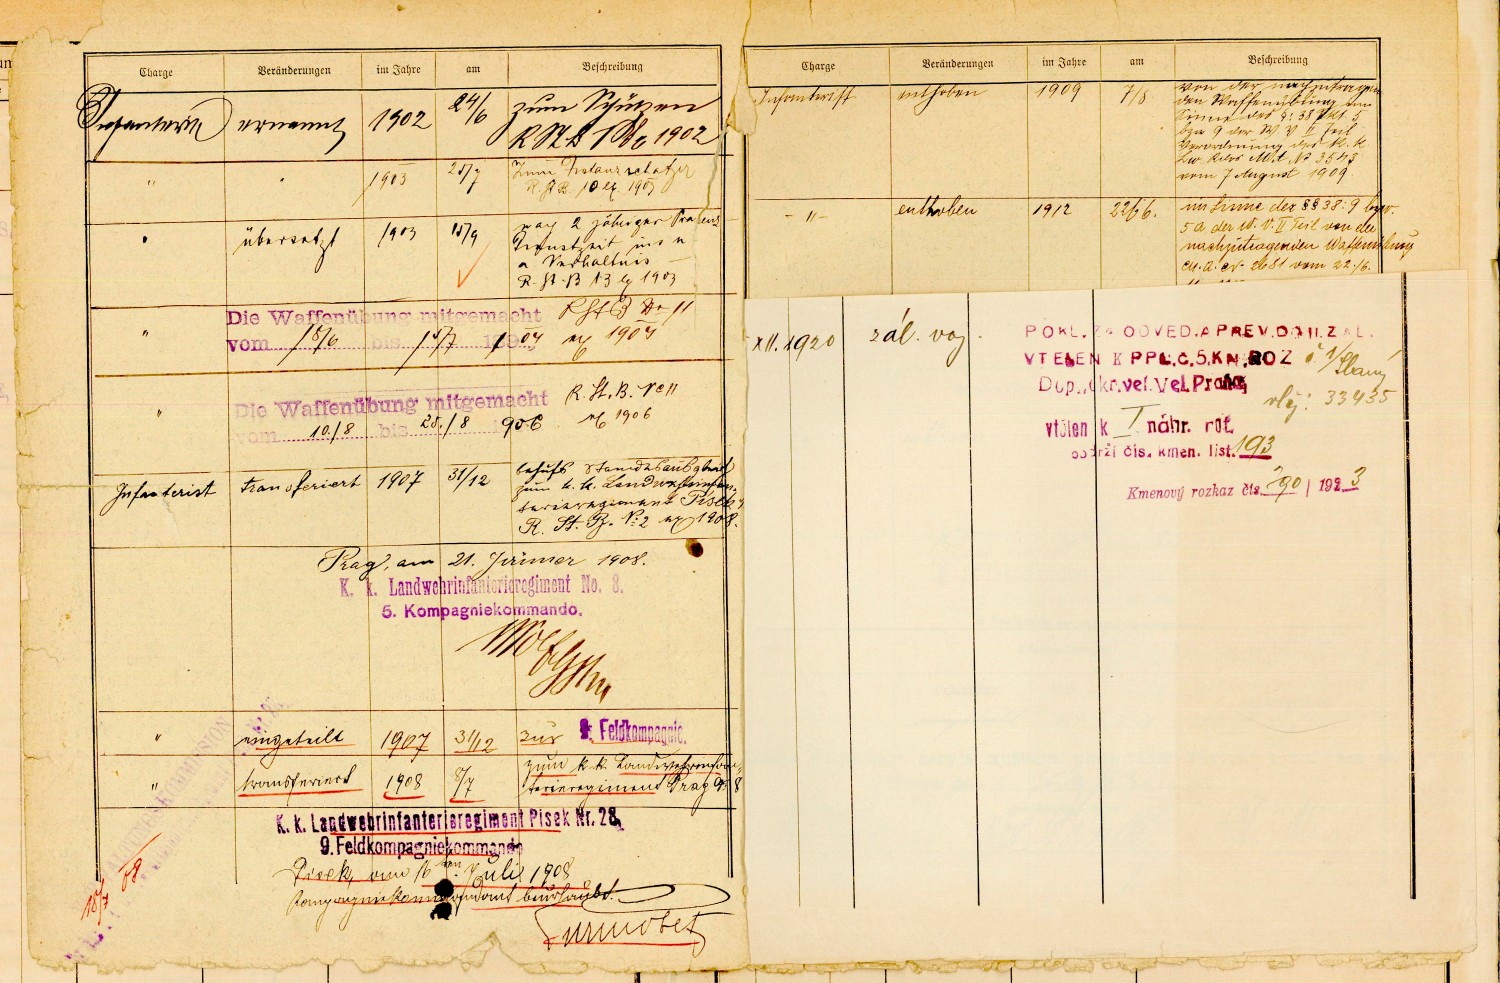 Charge Veränderungen im Jahre am Beschreibung
Infanterist ernannt 1902 24/6 zum Schützen
1902
" " 1903 25/7
R. St. B. 10 ex 1903
" übersetzt 1903 15/9 nach 2 jähriger Präsenz
Dienstzeit ins n
a Verhältnis
R. St. B 13 ex 1903
" Die Waffenübung mitgemacht R St B No 11
vom 18/6 bis 15/7 1904 ex 1904
" Die Waffenübung mitgemacht R. St. B. No 11
vom 10./8 bis 25./8 1906 ex 1906
Infanterist transferiert 1907 31/12 behufs Standesausgleich
zum k. k. Landwehrinfan-
terieregiment Pisek
R. St. B. No 2 ex 1908.
Prag, am 21. Jänner 1908.
K. k. Landwehrinfanterieregiment No. 8.
5. Kompagniekommando.
" eingeteilt 1907 31/12 zur 9. Feldkompagnie.
" transferiert 1908 8/7 zum k. k. Landwehrinfan-
terieregiment Prag No 8
K. k. Landwehrinfanterieregiment Pisek Nr. 28,
9. Feldkompagniekommando
Pisek, vom 16ten Juli 1908
Kompagniekommandant beurlaubt.
18/7 08
Charge Veränderungen im Jahre am Beschreibung
Infanterist enthoben 1909 7/8 von der nachzutragen
den Waffenübung im
Sinne des §: 38 Pkt. 5
bzw 9 der W V II Teil
Verordnung des k. k.
No 3543
vom 7 August 1909
- " - enthoben 1912 22/6. im Sinne der §§ 38: 9 bezw.
5 a der W. V. II Teil von der
nachzutragenden Waffenübung
2681 vom 22./6.
XII. 1920 zál. voj.
POKL. ZA ODVED. A PREV. DO II. ZAL.
VTĚLEN K PPL. Č. 5. KN. ROZ č 1/Slaný
Dop. okr. vel. Vel. Praha
33435
vtělen k I náhr. rot.
podrží čís. kmen. list. 193
Kmenový rozkaz čís. 290 / 1923